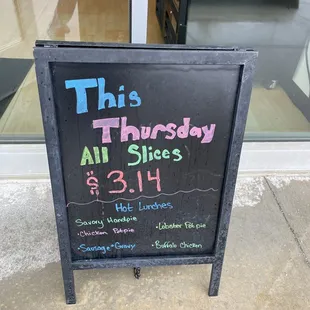 This
Thursday
All Slices
$3.14
Hot Lunches
Savory Handpie
• Chicken Potpie
• Lobster Pot pie
• Sausage + Gravy
• Buffalo Chicken